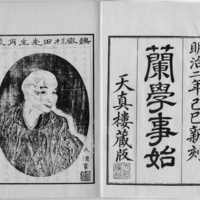 明治二年己巳新刻
蘭學事始
天真樓藏版
杉田先生肖